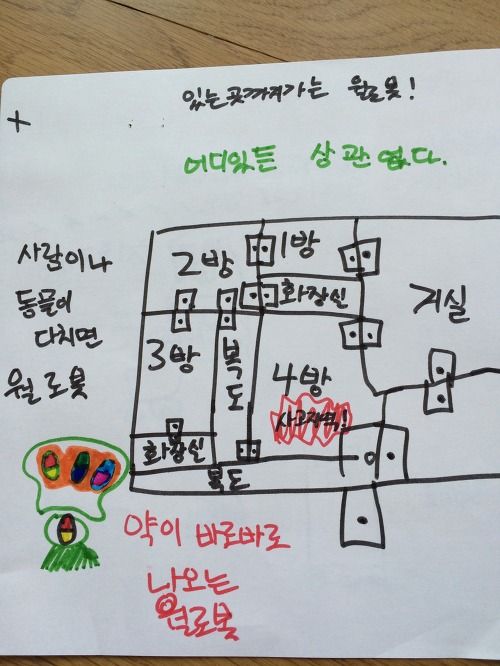 있는곳까지가는 월로봇!
어디있든 상관없다.
사람이나
동물이
다치면
월로봇
2방
1방
화장실
거실
3방
복도
4방
사고지역!
화장실
복도
약이 바로바로
나오는
월로봇